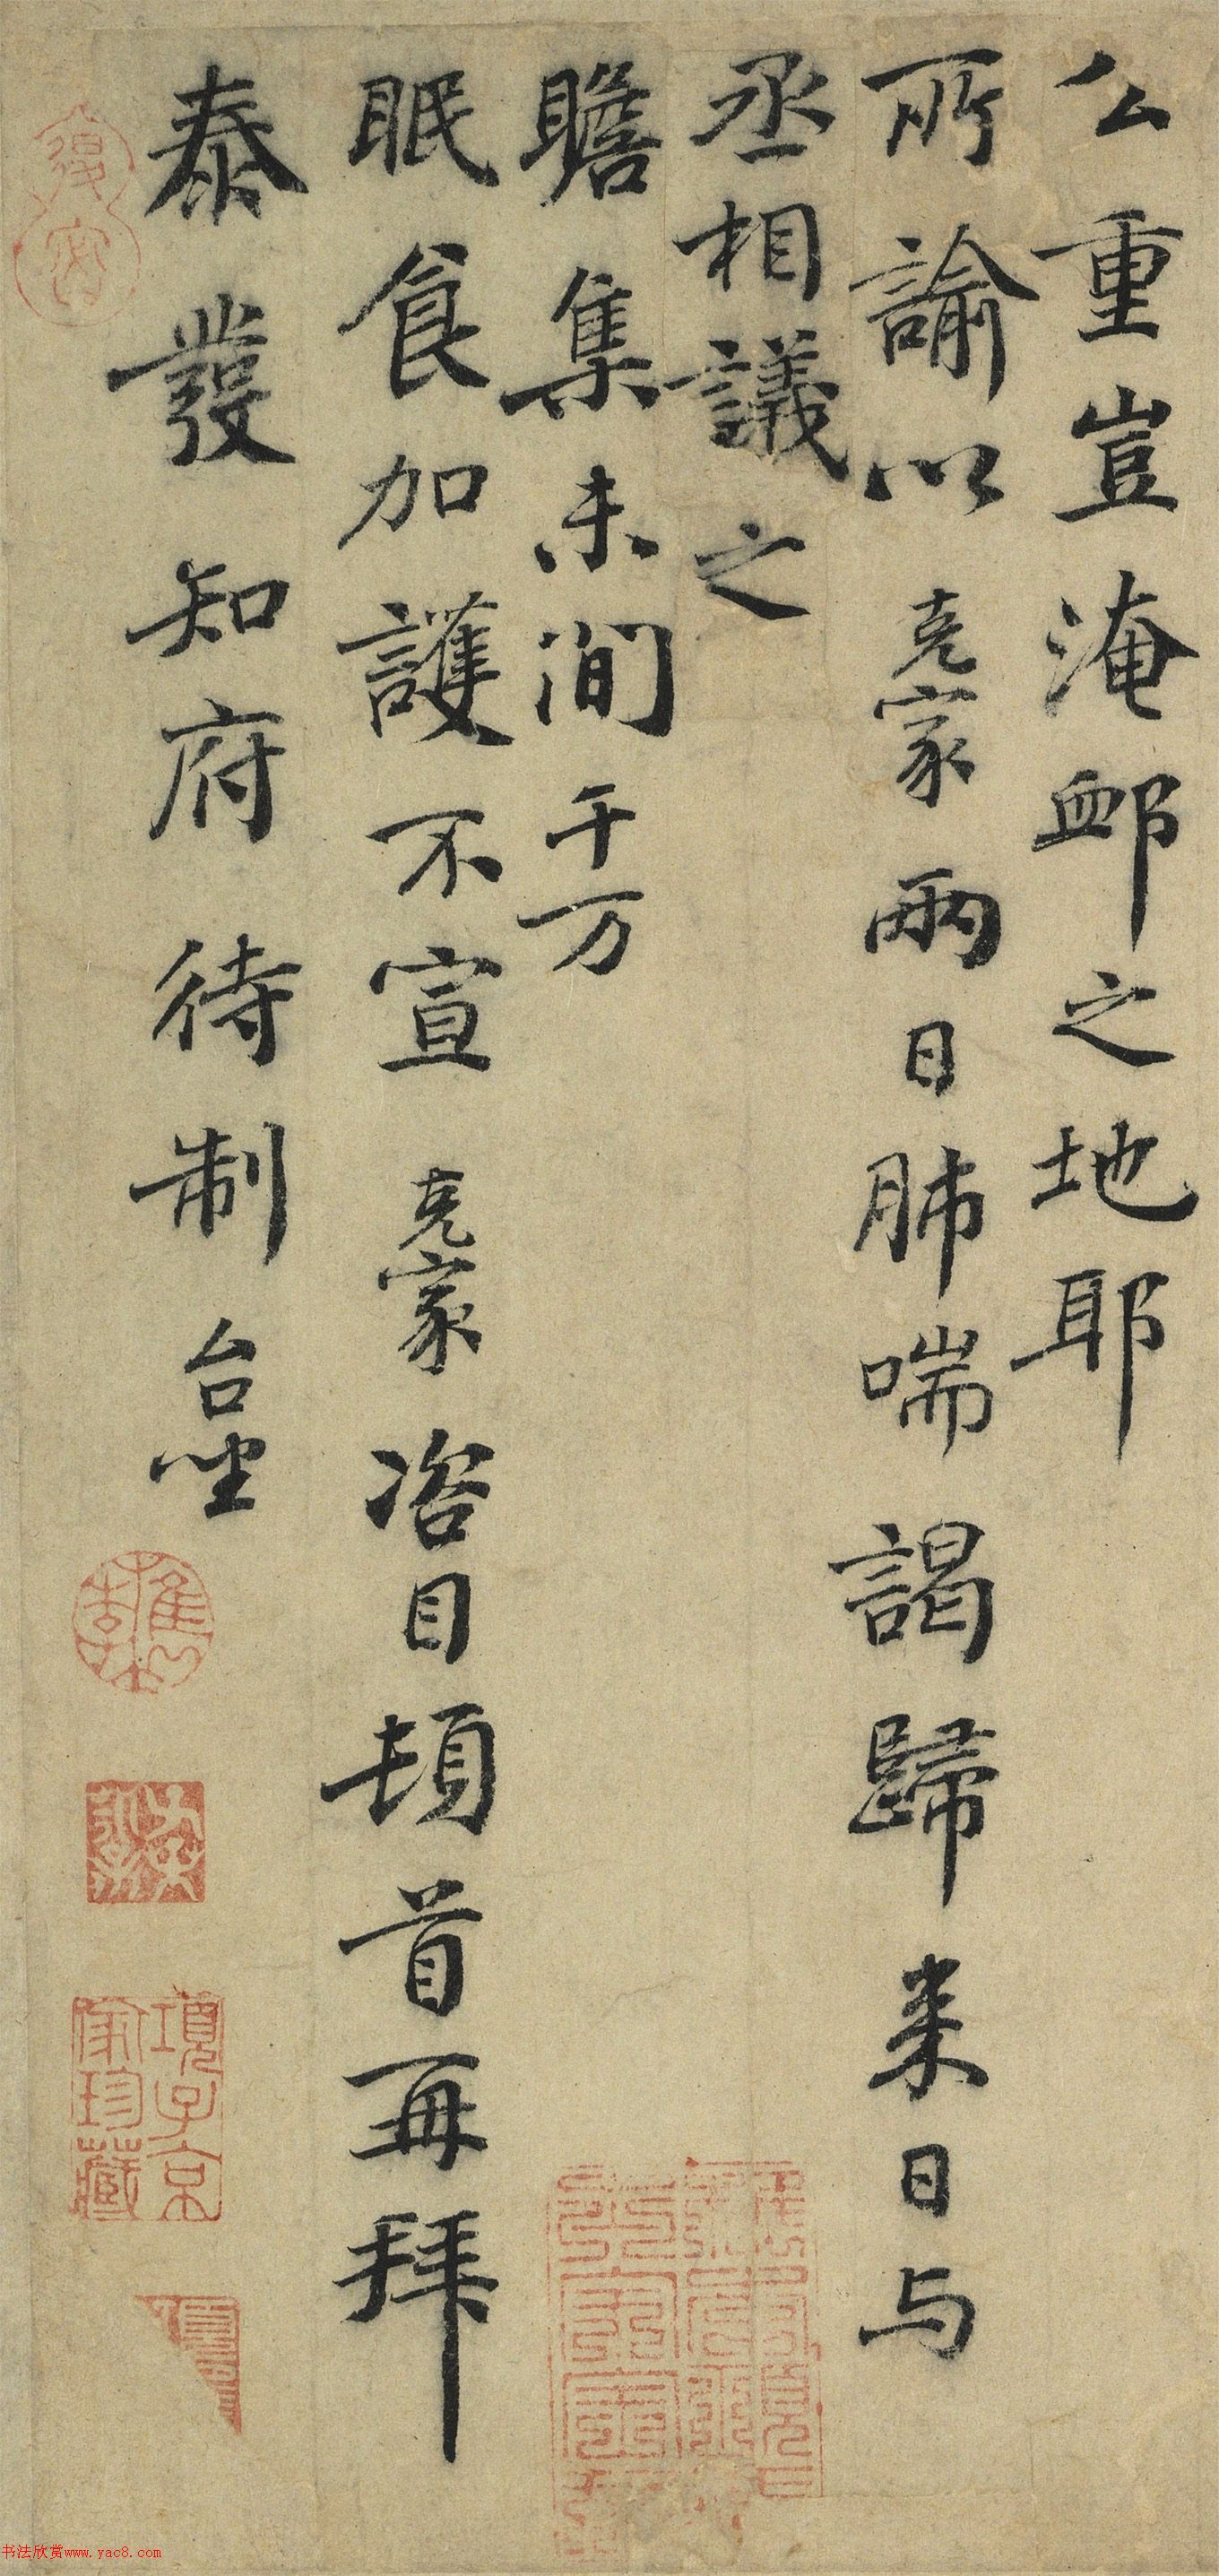 公重豈淹衈之地耶
所諭以克家兩日肺喘謁歸来日与
丞相議之
瞻集未間千万
眠食加護不宣克家咨目頓首再拜
泰發知府待制台坐
項子京
家珍藏
书法欣赏www.yac8.com